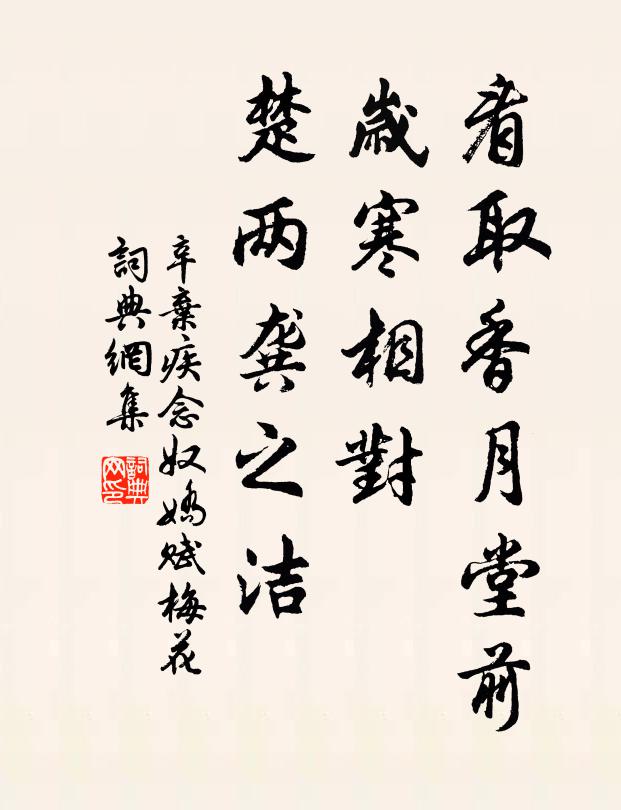 看取香月堂前
歲寒相對
楚两龔之洁
辛棄疾念奴嬌赋梅花
詞典網集
詞典网印